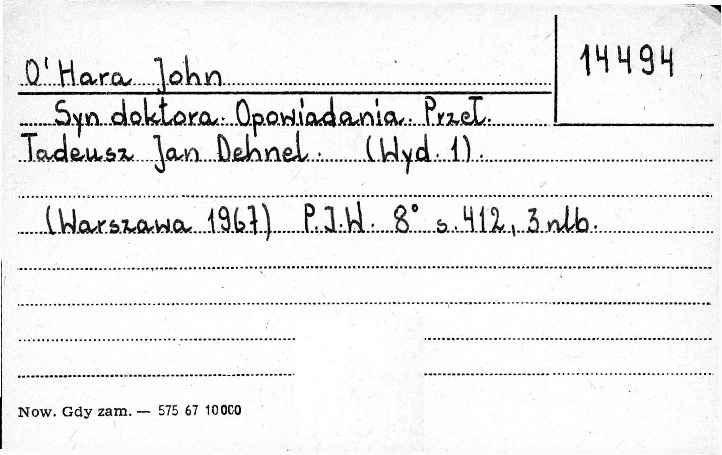 O'Hara John
14494
Syn doktora. Opowiadania. Przeł.
Tadeusz Jan Dehnel. (Wyd. 1).
(Warszawa 1967) P.I.W. 8° s. 412, 3 nlb.
Now. Gdy zam. — 575 67 10000